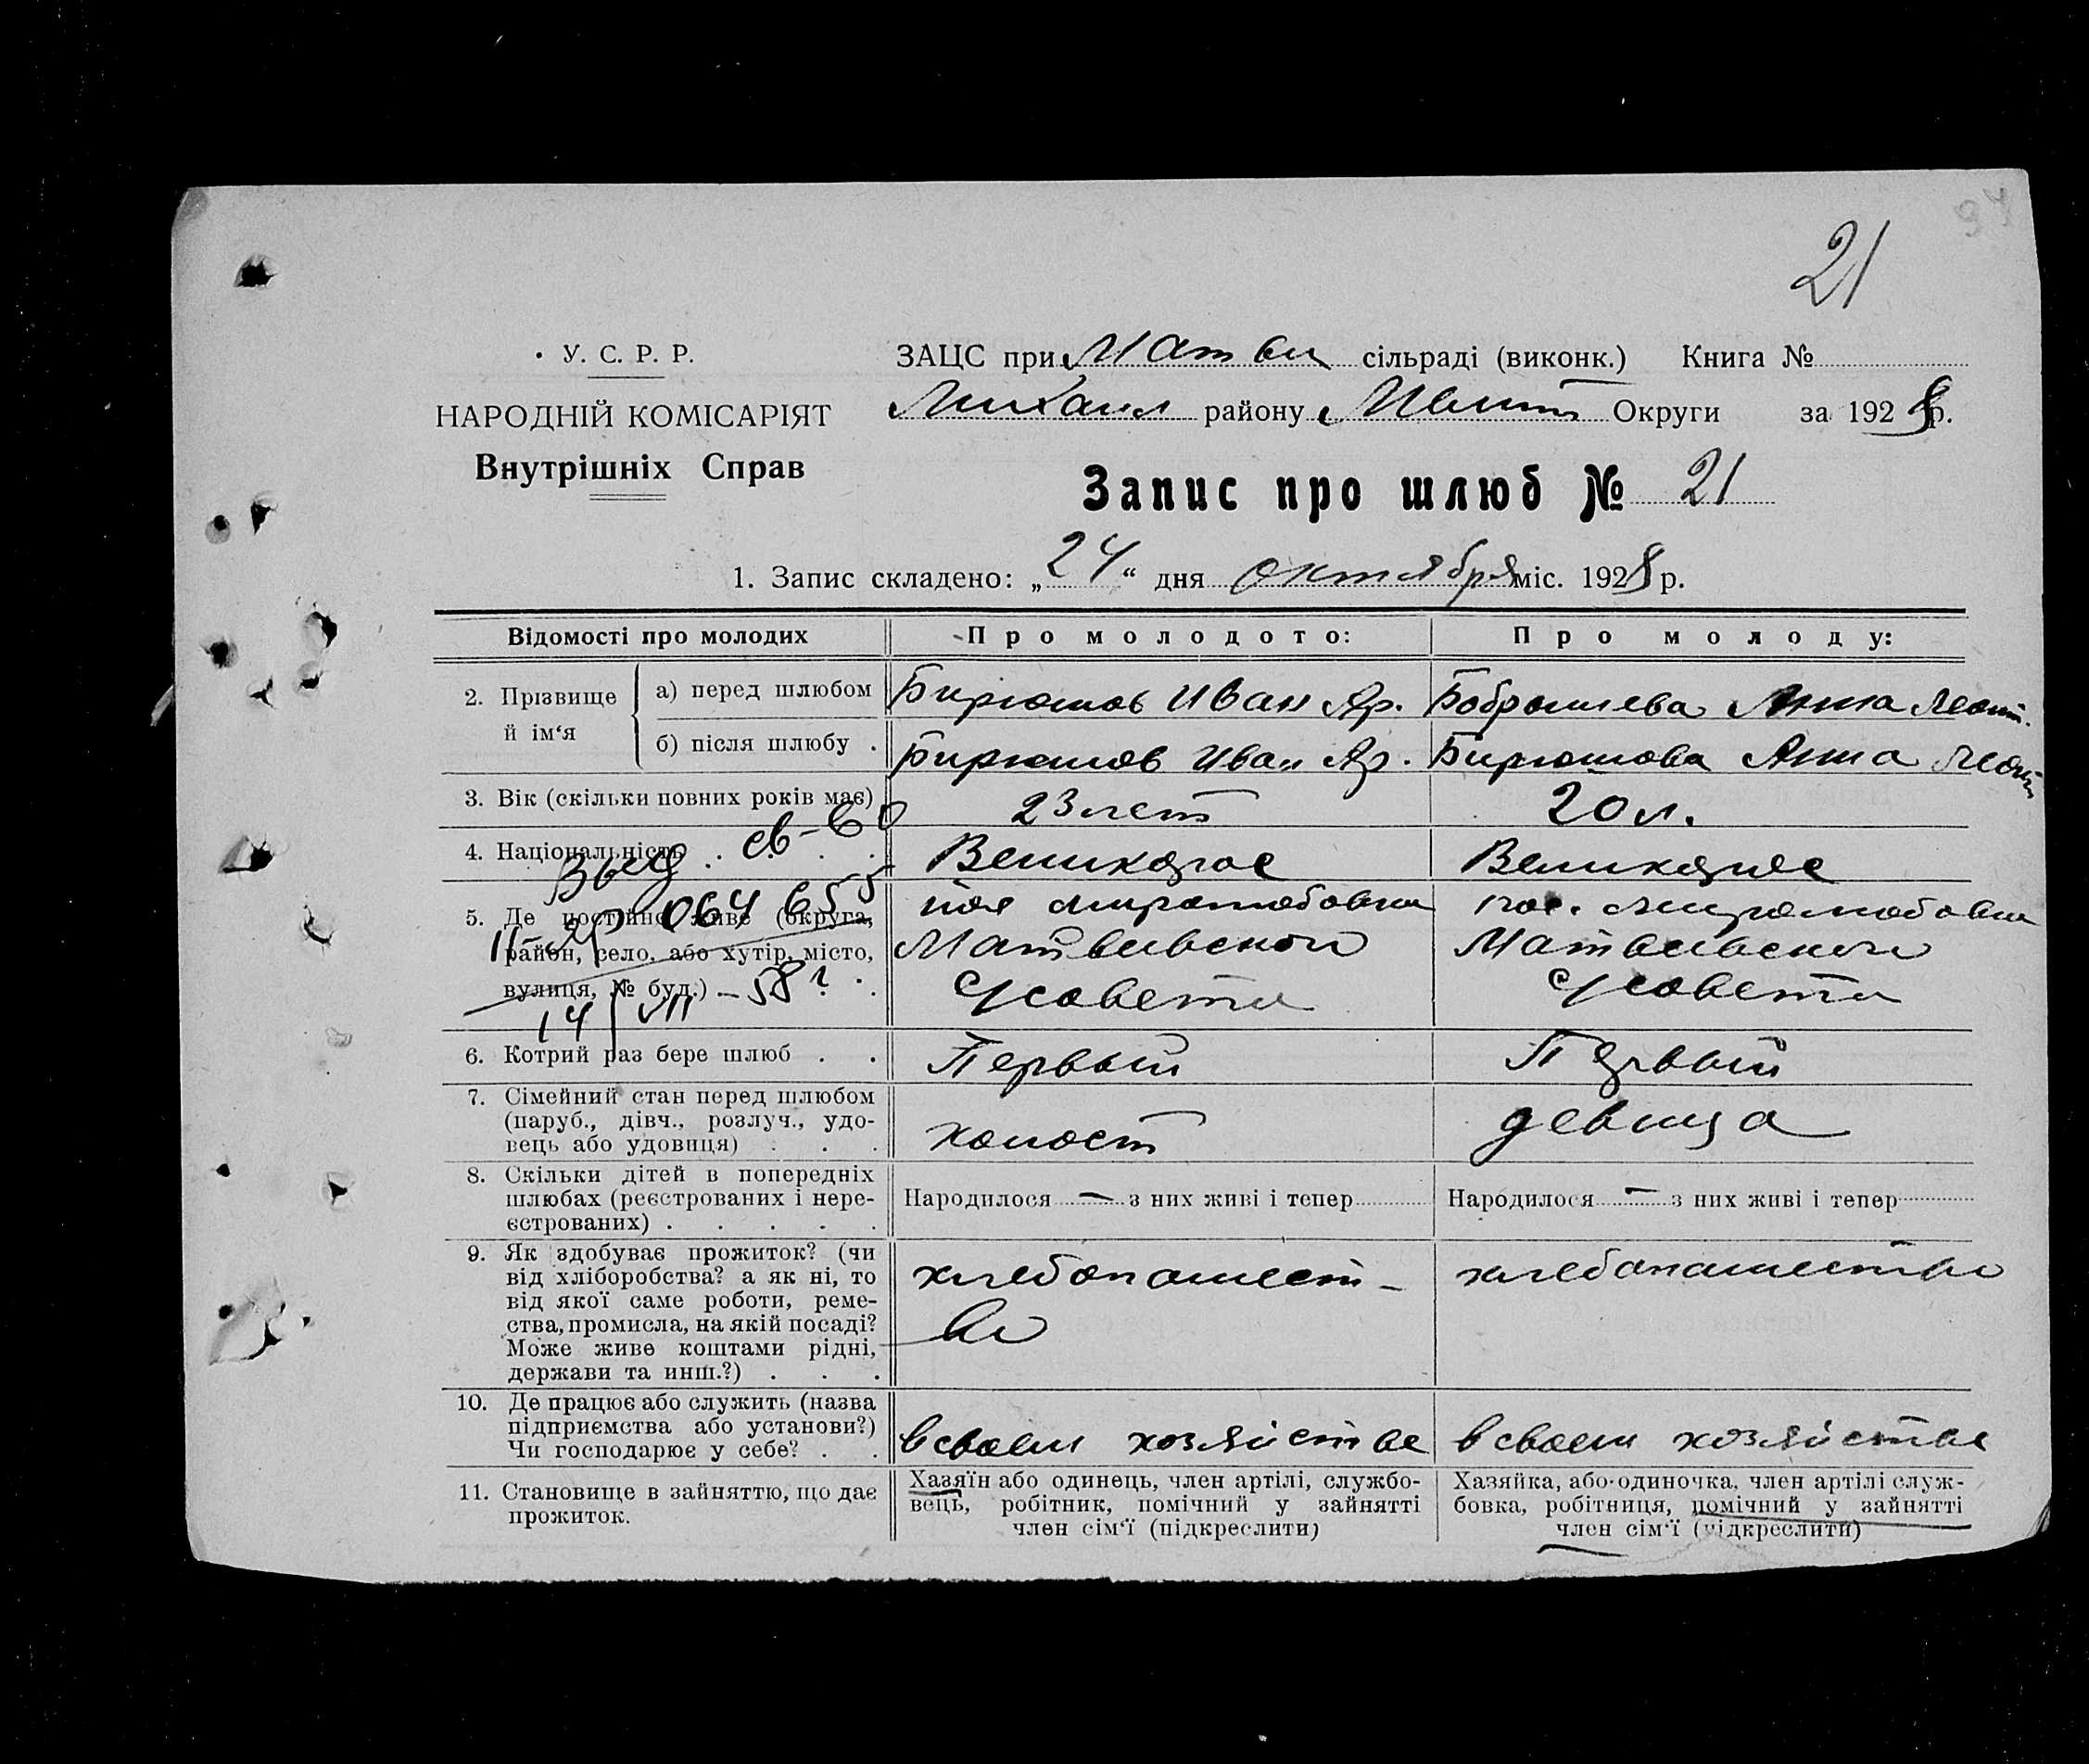 21
• У. С. Р. Р.
НАРОДНІЙ КОМІСАРІЯТ
Внутрішніх Справ
ЗАЦС при Матви сільраді (виконк.) Книга №
Михаил району Округи за 1928 р.
Запис про шлюб № 21
1. Запис складено: „24“ дня октября міс. 1928 р.
Відомості про молодих
Про молодого:
Про молоду:
2. Прізвище й ім‘я
а) перед шлюбом
Бирюшов Иван Яр.
Бобрышева Анна Леонт.
б) після шлюбу .
Бирюшов Иван Яр.
Бирюшова Анна Леонт
3. Вік (скільки повних років має)
23 лет
20 л.
4. Національність
Великорос
Великорос
Выд св-во
064655
14/VII – 58 г
5. Де постійно живе (округа,
район, село, або хутір, місто,
вулиця, № буд.)
пос Миролюбовка
Матвеевского
С/совета
пос. Миролюбовка
Матвеевского
С/совета
6. Котрий раз бере шлюб . .
Первый
Первый
7. Сімейний стан перед шлюбом
(паруб., дівч., розлуч., удо-
вець або удовиця) . . .
холост
девица
8. Скільки дітей в попередніх
шлюбах (реєстрованих і нере-
єстрованих) . . . . .
Народилося — з них живі і тепер
Народилося — з них живі і тепер
9. Як здобуває прожиток? (чи
від хліборобства? а як ні, то
від якої саме роботи, реме-
ства, промисла, на якій посаді?
Може живе коштами рідні,
держави та инш.?) . . .
хлебопашест-
во
хлебопашество
10. Де працює або служить (назва
підприємства або установи?)
Чи господарює у себе? . .
в своем хозяйстве
в своем хозяйстве
11. Становище в зайняттю, що дає
прожиток.
Хазяїн або одинець, член артілі, службо-
вець, робітник, помічний у зайнятті
член сім‘ї (підкреслити)
Хазяйка, або одиночка, член артілі служ-
бовка, робітниця, помічний у зайнятті
член сім‘ї (підкреслити)